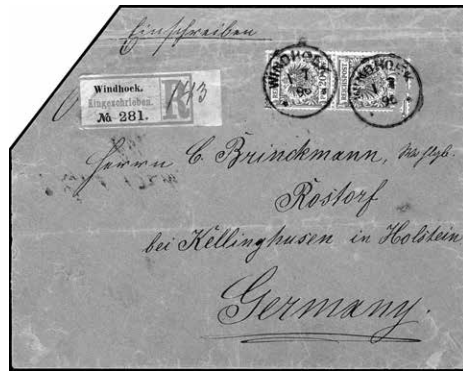 Einschreiben
Windhoek.
Eingeschrieben.
No 281.
R
WINDHOEK
WINDHOEK
REICHSPOST
Herrn C. Brinckmann,
Rostorf
bei Kellinghusen in Holstein
Germany.